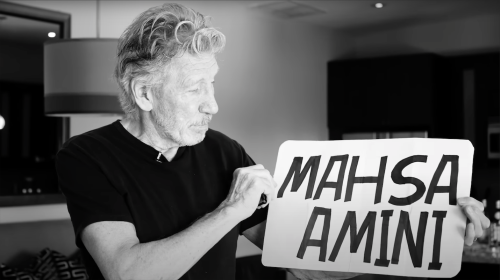 MAHSA
AMINI